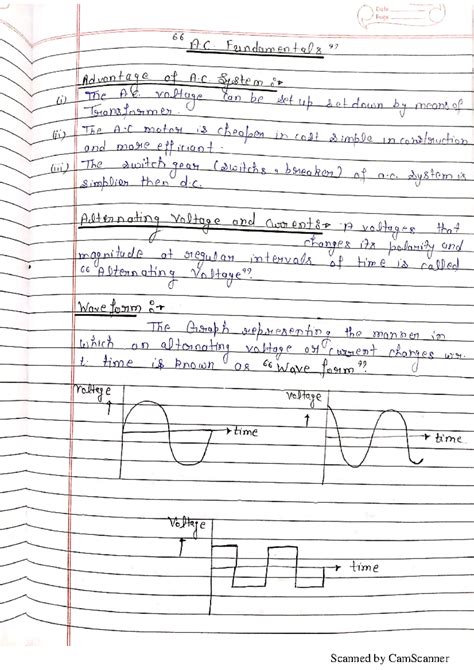 Date
Page
“ A.C. Fundamentals ”
Advantage of A.C System :-
(i) The A.C. voltage can be set up set down by means of
Transformer.
(ii) The A.C motor is cheaper in cost simple in construction
and more efficient.
(iii) The switch gear (switchs & breaker) of a.c. system is
simplier then d.c.
Alternating Voltage and Currents :- A voltages that
changes its polarity and
magnitude at regular intervals of time is called
“ Alternating Voltage”.
Wave form :-
The Graph representing the manner in
which an alternating voltage or current changes w.r.
t. time is known as “Wave form”.
Voltage
time
Voltage
time
Voltage
time
Scanned by CamScanner